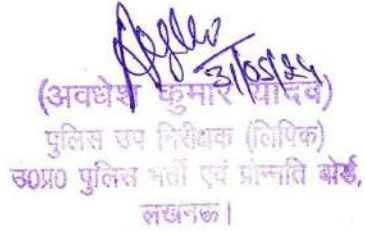 31/05/24
(अवधेश कुमार यादव)
पुलिस उप निरीक्षक (लिपिक)
उ०प्र० पुलिस भर्ती एवं प्रोन्नति बोर्ड,
लखनऊ।